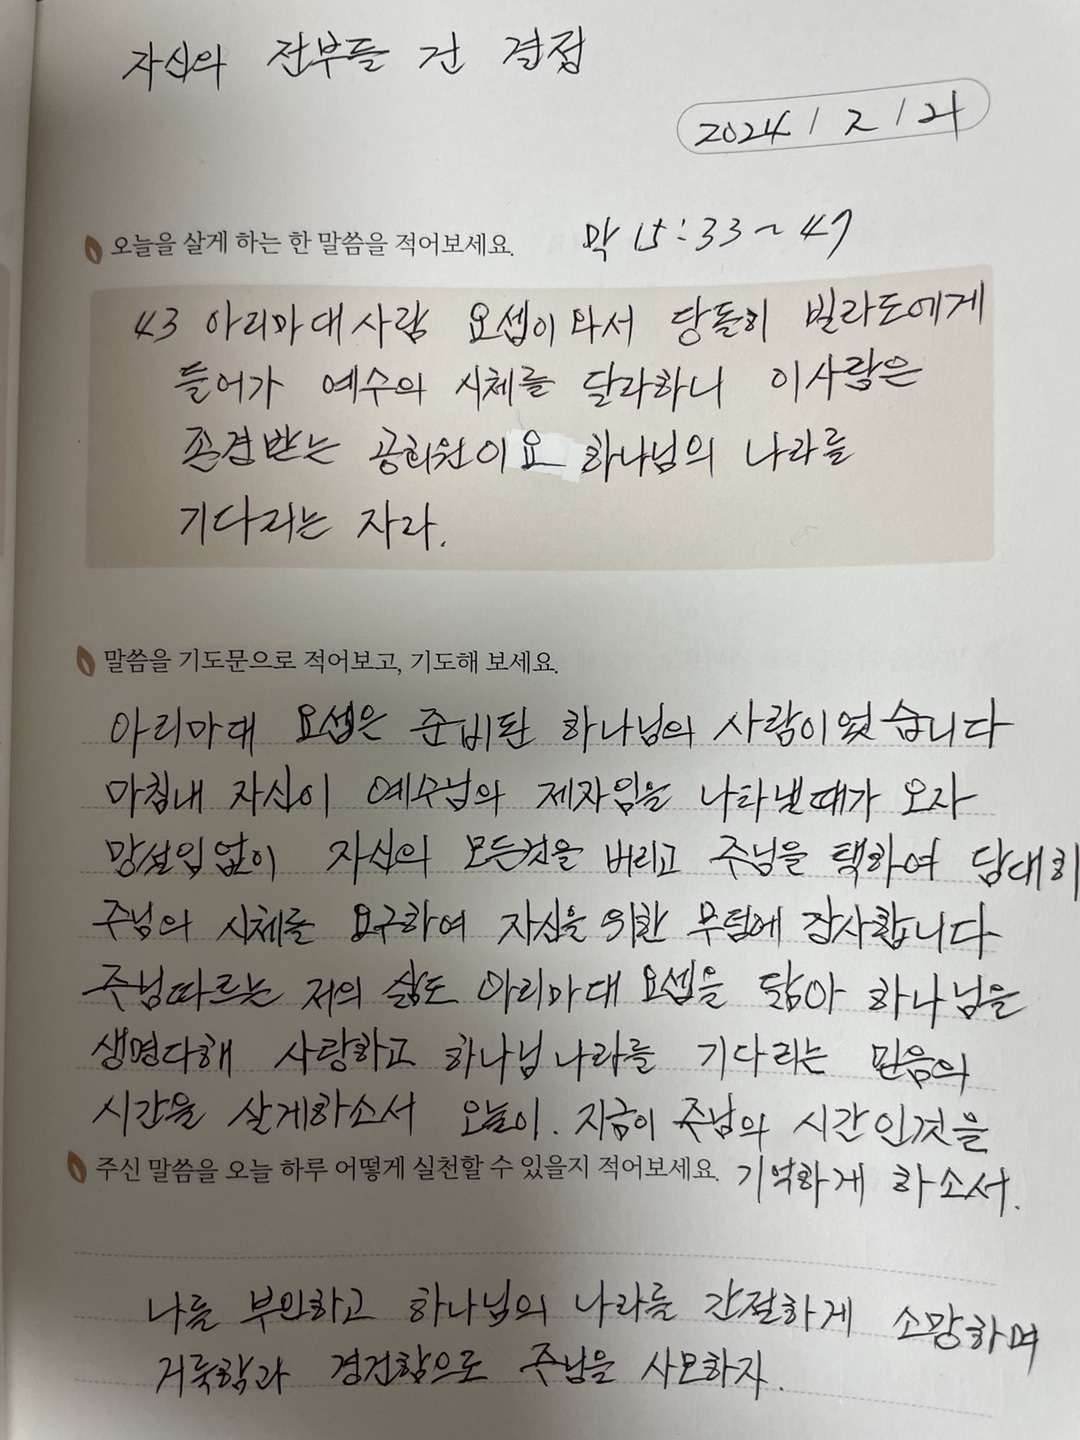 자신의 전부를 건 결정
2024 / 2 / 21
오늘을 살게 하는 한 말씀을 적어보세요. 막 15:33~47
43 아리마대 사람 요셉이 와서 당돌히 빌라도에게
들어가 예수의 시체를 달라하니 이사람은
존경받는 공회원이요 하나님의 나라를
기다리는 자라.
말씀을 기도문으로 적어보고, 기도해 보세요.
아리마대 요셉은 준비된 하나님의 사람이었습니다
마침내 자신이 예수님의 제자임을 나타낼때가 오자
망설임없이 자신의 모든것을 버리고 주님을 택하여 담대히
주님의 시체를 요구하여 자신을 위한 무덤에 장사합니다
주님따르는 저의 삶도 아리마대 요셉을 닮아 하나님을
생명다해 사랑하고 하나님 나라를 기다리는 믿음의
시간을 살게하소서 오늘이. 지금이 주님의 시간인것을
주신 말씀을 오늘 하루 어떻게 실천할 수 있을지 적어보세요. 기억하게 하소서.
나를 부인하고 하나님의 나라를 간절하게 소망하며
거룩함과 경건함으로 주님을 사모하자.